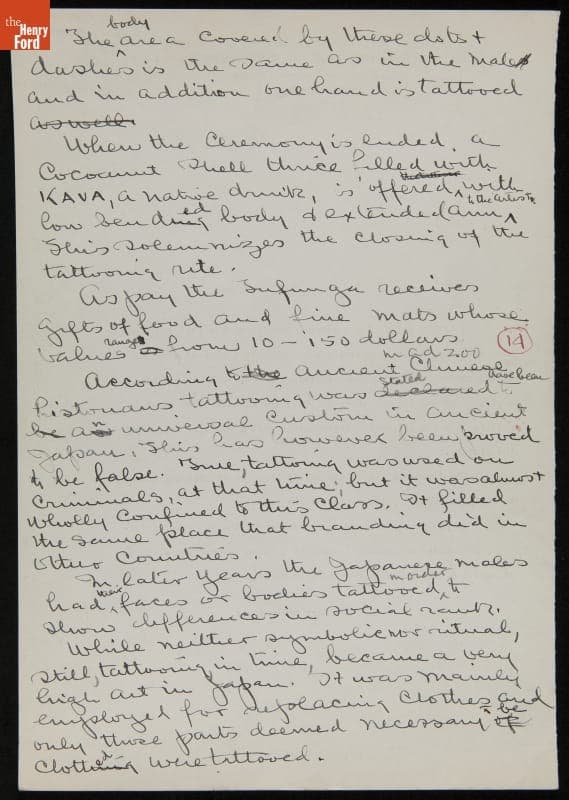 the
Henry
Ford
body
The area covered by these dots +
dashes is the same as in the males
and in addition one hand is tattooed
as well.
When the ceremony is ended, a
Cocoanut shell thrice filled with
KAVA, a native drink, is offered, with
to the artist
low bended body & extended arm
This solemnizes the closing of the
tattooing rite.
As pay the Tufunga receives
gifts of food and fine mats whose
values range from 10 – 150 dollars.
14
in A.D. 200
According to the ancient Chinese
stated have been
historians tattooing was declared to
be an universal custom in ancient
Japan. This has however been proved
to be false. True, tattooing was used on
criminals, at that time, but it was almost
wholly confined to this class. It filled
the same place that branding did in
other countries.
In later years the Japanese males
had their faces or bodies tattooed in order to
show differences in social rank.
While neither symbolic nor ritual,
still, tattooing in time, became a very
high art in Japan. It was mainly
employed for replacing clothes and
only those parts deemed necessary to be
clothed were tattooed.